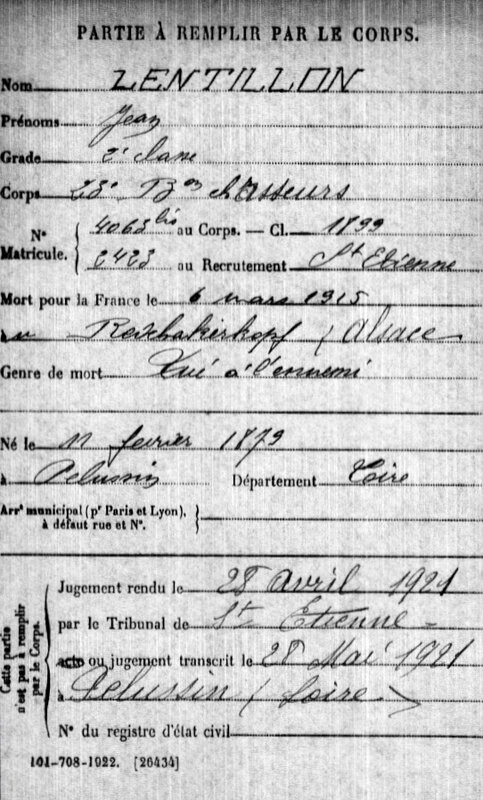 PARTIE À REMPLIR PAR LE CORPS.
Nom LENTILLON
Prénoms Jean
Grade 2e classe
Corps 23e Bon chasseurs
N° Matricule. { 4063 bis au Corps. — Cl. 1899
2423 au Recrutement St Etienne
Mort pour la France le 6 mars 1915
à au Reichakerkopf (Alsace
Genre de mort Tué à l'ennemi
Né le 11 février 1879
à Pelussin Département Loire
Arrt municipal (pr Paris et Lyon), à défaut rue et N°. }
Cette partie n'est pas à remplir par le Corps. {
Jugement rendu le 28 Avril 1921
par le Tribunal de St Etienne
acte ou jugement transcrit le 28 Mai 1921
à Pelussin (Loire)
N° du registre d'état civil
101-708-1922. [26434]